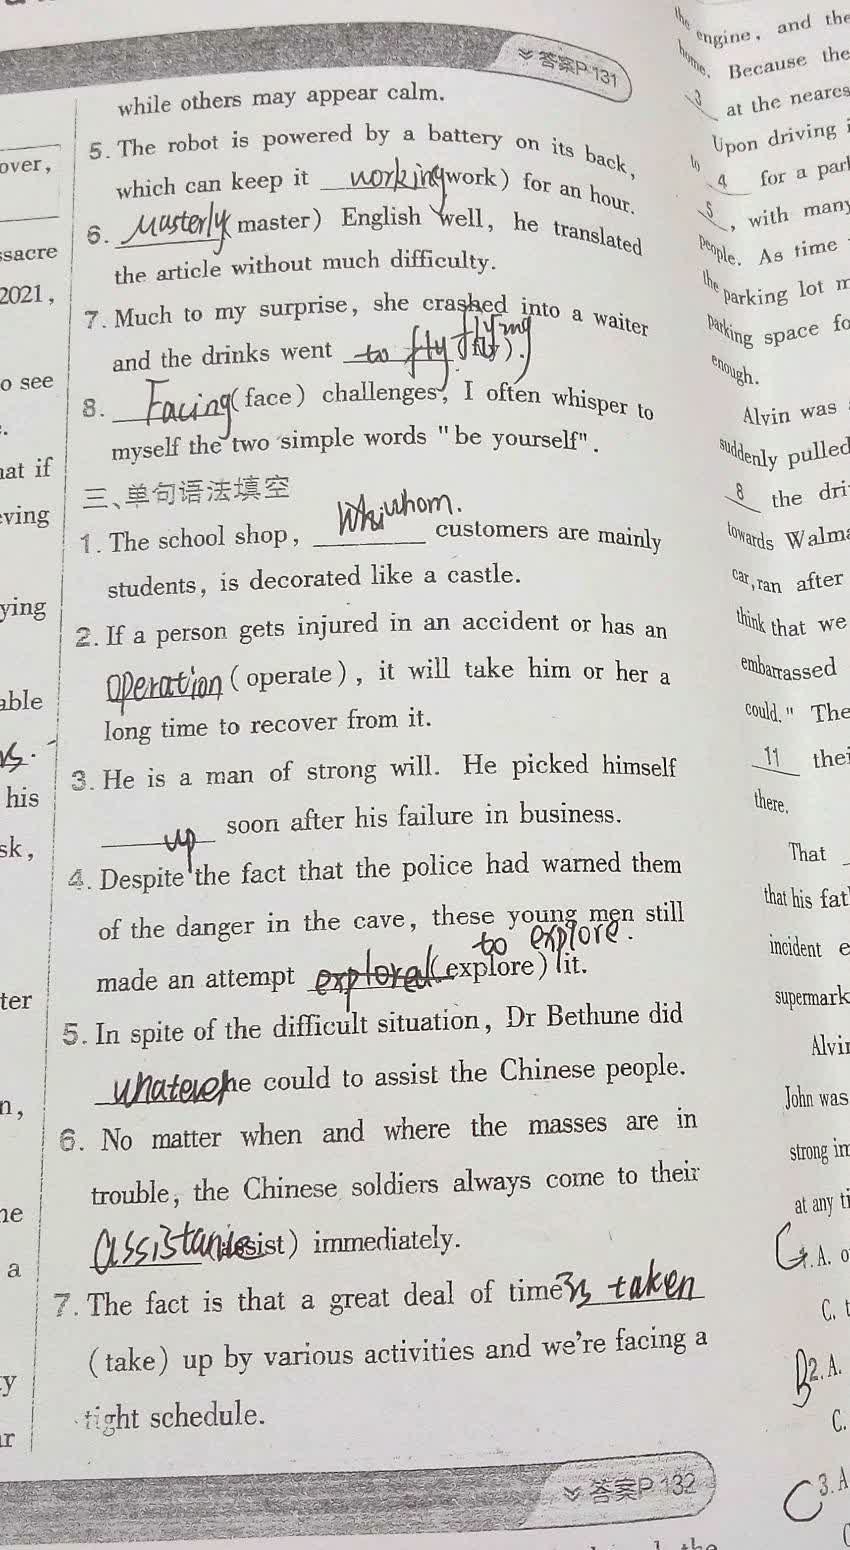 答案P 131
while others may appear calm.
5. The robot is powered by a battery on its back,
which can keep it working(work) for an hour.
6. Masterly(master) English well, he translated
the article without much difficulty.
7. Much to my surprise, she crashed into a waiter
and the drinks went to fly flying (fly).
8. Facing(face) challenges, I often whisper to
myself the two simple words "be yourself".
三、单句语法填空
1. The school shop, whom. customers are mainly
students, is decorated like a castle.
2. If a person gets injured in an accident or has an
operation (operate), it will take him or her a
long time to recover from it.
3. He is a man of strong will. He picked himself
up soon after his failure in business.
4. Despite the fact that the police had warned them
of the danger in the cave, these young men still
to explore.
made an attempt explored (explore) it.
5. In spite of the difficult situation, Dr Bethune did
whatever he could to assist the Chinese people.
6. No matter when and where the masses are in
trouble, the Chinese soldiers always come to their
(assist) immediately.
7. The fact is that a great deal of time is taken
(take) up by various activities and we're facing a
tight schedule.
答案P 132
over,
ssacre
2021,
o see
hat if
ving
ying
able
his
sk,
ter
n,
he
a
y
r
the engine, and the
home. Because the
3 at the neares
Upon driving i
to 4 for a par
5, with many
people. As time
the parking lot m
parking space fo
enough.
Alvin was
suddenly pulled
8 the dri
towards Walma
car, ran after
think that we
embarrassed
could." The
11 thei
there.
That
that his fat
incident e
supermark
Alvi
John was
strong im
at any ti
1. A. o
C. t
B 2. A.
C.
C 3. A